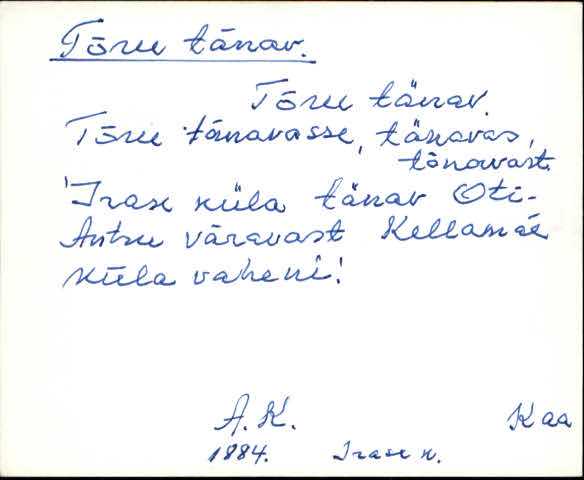 Tõru tänav.
Tõru tänav.
Tõru tänavasse, tänavas,
tänavast.
'Irase küla tänav Oti-
Antsu väravast Kellamäe
küla vaheni!
A. K. Kaa
1984. Irase k.